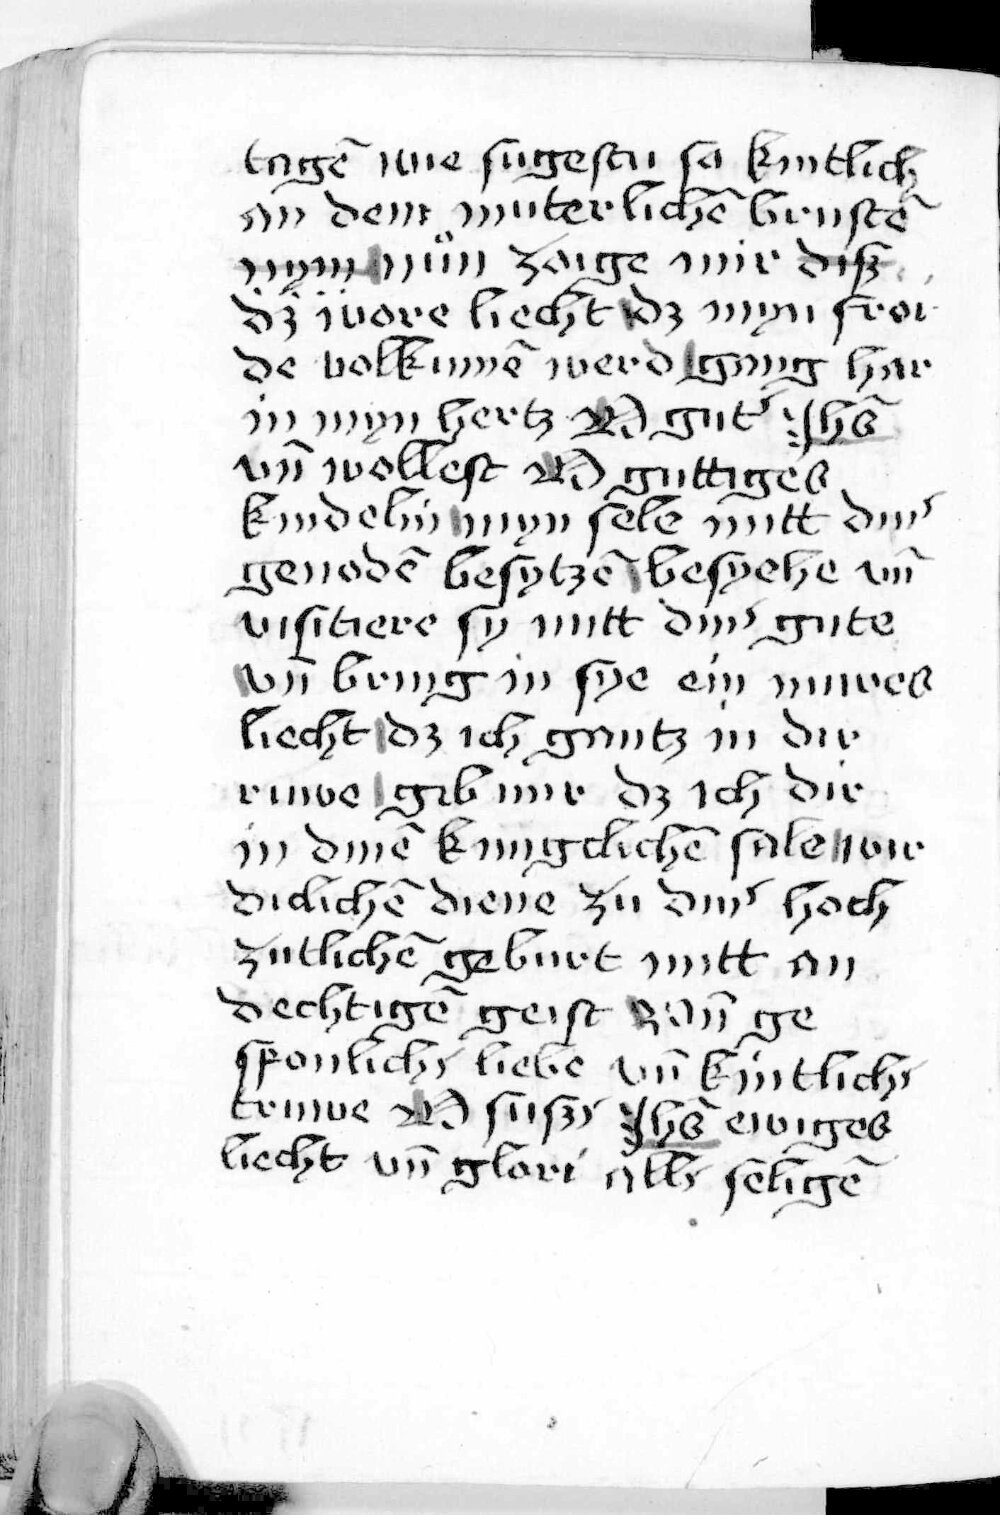 tagē wie sugestu sa kintlich
an dem muterlichē brustē
mym nuͦn zoige mir diß
dz wore liecht dz myn froi
de volkumē werd gang har
in myn hertz O gutʼ Jhs̄
vn̄ wollest O guttiges
kindelin myn sele mitt dinʼ
genodē besytzē besyehe vn̄
visitiere sy mitt dinʼ gute
vn̄ bring in sye ein nuwes
liecht dz ich gantz in dir
ruwe gib mir dz ich dir
in dinē kungclichē sale wir
diclichē dienē zu dinʼ hoch
zitlichē geburt mitt an
dechtigē geist vn̄ ge
sponlichʼ liebe vn̄ kintlichʼ
truwe O sußʼ Jhs̄ ewiges
liecht vn̄ glori allʼ seligē